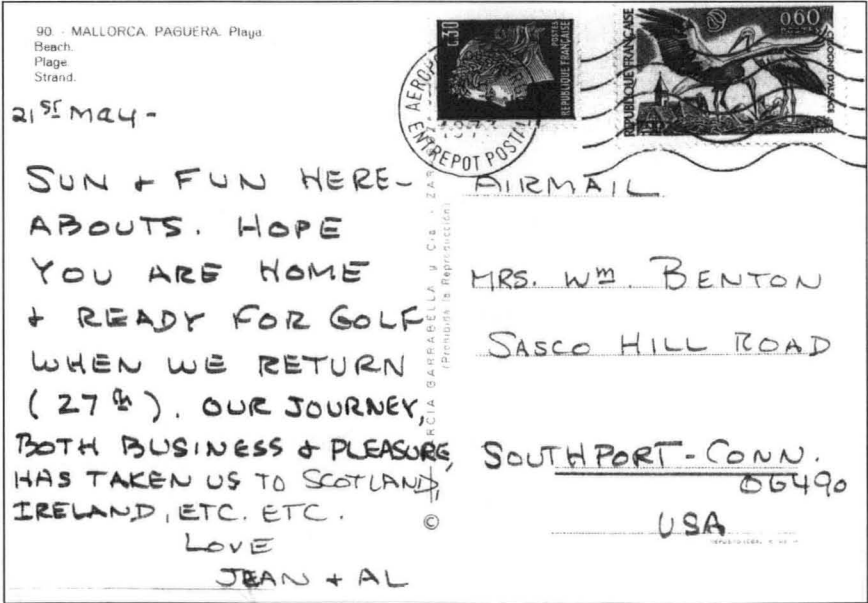 90 - MALLORCA. PAGUERA. Playa.
Beach.
Plage.
Strand.
21ST May -
SUN + FUN HERE-
ABOUTS. HOPE
YOU ARE HOME
+ READY FOR GOLF
WHEN WE RETURN
(27th). OUR JOURNEY,
BOTH BUSINESS & PLEASURE,
HAS TAKEN US TO SCOTLAND,
IRELAND, ETC. ETC.
LOVE
JEAN + AL
GARCIA GARRABELLA y Cia. - ZAR
(Prohibida la Reproducción)
©
0.30
POSTES
REPUBLIQUE FRANÇAISE
REPUBLIQUE FRANÇAISE
0.60
CIGOGNE D'ALSACE
AEROPO
ENTREPOT POSTAL
AIRMAIL
MRS. Wm. BENTON
SASCO HILL ROAD
SOUTHPORT - CONN.
06490
USA